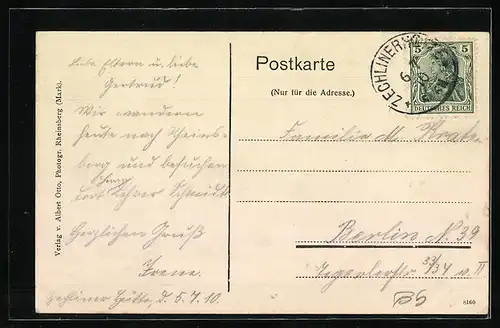 Liebe Eltern u. liebe
Gertrud!
Wir wandern
heute nach Rheins-
berg und besuchen
Lehrer Schmidt
Herzlichen Gruß
Irene.
Zechliner Hütte, d. 5.7.10.
Verlag v. Albert Otto, Photogr. Rheinsberg (Mark).
Postkarte
(Nur für die Adresse.)
ZECHLINERH
5 5
DEUTSCHES REICH
Familie M.
Berlin N 39
Tegelerstr 33/34 v. II
8160